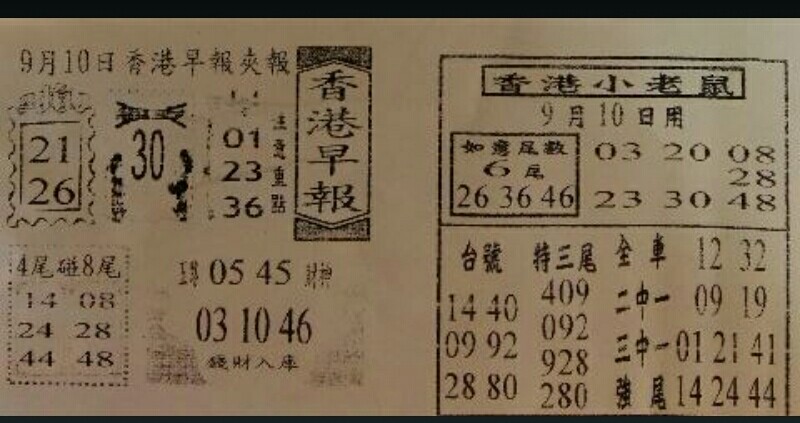 9月10日香港早報夾報
香港早報
21
26
30
01
23
36
注意重點
4尾碰8尾
14 08
24 28
44 48
05 45 財神
03 10 46
錢財入庫
香港小老鼠
9月10日用
如意尾數
6尾
26 36 46
03 20 08
28
23 30 48
台號 特三尾 全車 12 32
14 40 409 二中一 09 19
09 92 092 三中一 01 21 41
28 80 928 強尾 14 24 44
280